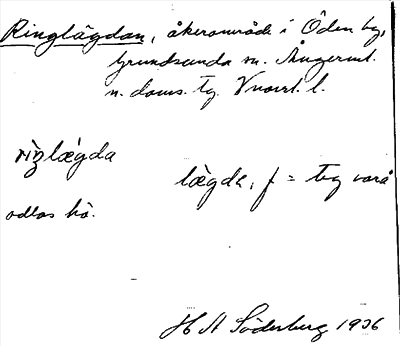 Ringlägdan, åkerområde i Öden by,
Grundsunda sn. Ångerml.
n. doms. tg. Vnorrl. l.
rìŋlæ̀gda
læ̀gda, f = teg varå
odlas hö.
H A Söderberg 1936